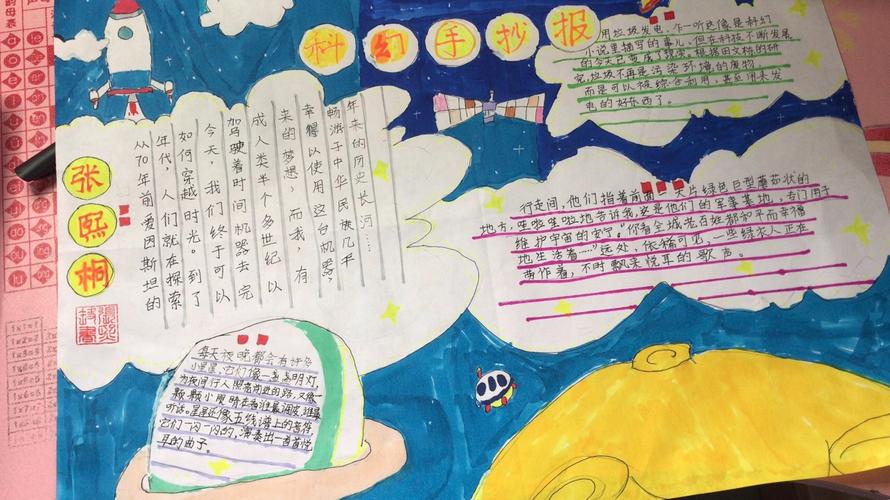 科幻手抄报
用垃圾发电，乍一听这像是科幻
小说里描写的事儿，但在科技不断发展
的今天已变成了现实。根据田文杨的研
究，垃圾不再是污染环境的废物，
而是可以被综合利用，甚至用来发
电的好东西了。
张熙桐
从70年前爱因斯坦的
年代，人们就在探索
如何穿越时光。到了
今天，我们终于可以
驾驶着时间机器去完
成人类半个多世纪以
来的梦想，而我，有
幸得以使用这台机器，
畅游于中华民族几千
年来的历史长河…
行走间，他们指着前面一大片绿色巨型蘑菇状的
地方，哇啦哇啦地告诉我，这是他们的军事基地，专门用于
维护宇宙的安宁。“你看全城老百姓都和平而幸福
地生活着……”远处，依稀可见，一些绿衣人正在
劳作着，不时飘来悦耳的歌声。
每天夜晚都会有许多
小星星，它们像一盏盏明灯，
为夜间行人照亮前进的路，又像一
颗颗小眼睛在看谁最调皮，谁最
听话。星星还像五线谱上的音符，
它们一闪一闪的，演奏出一首首悦
耳的曲子。